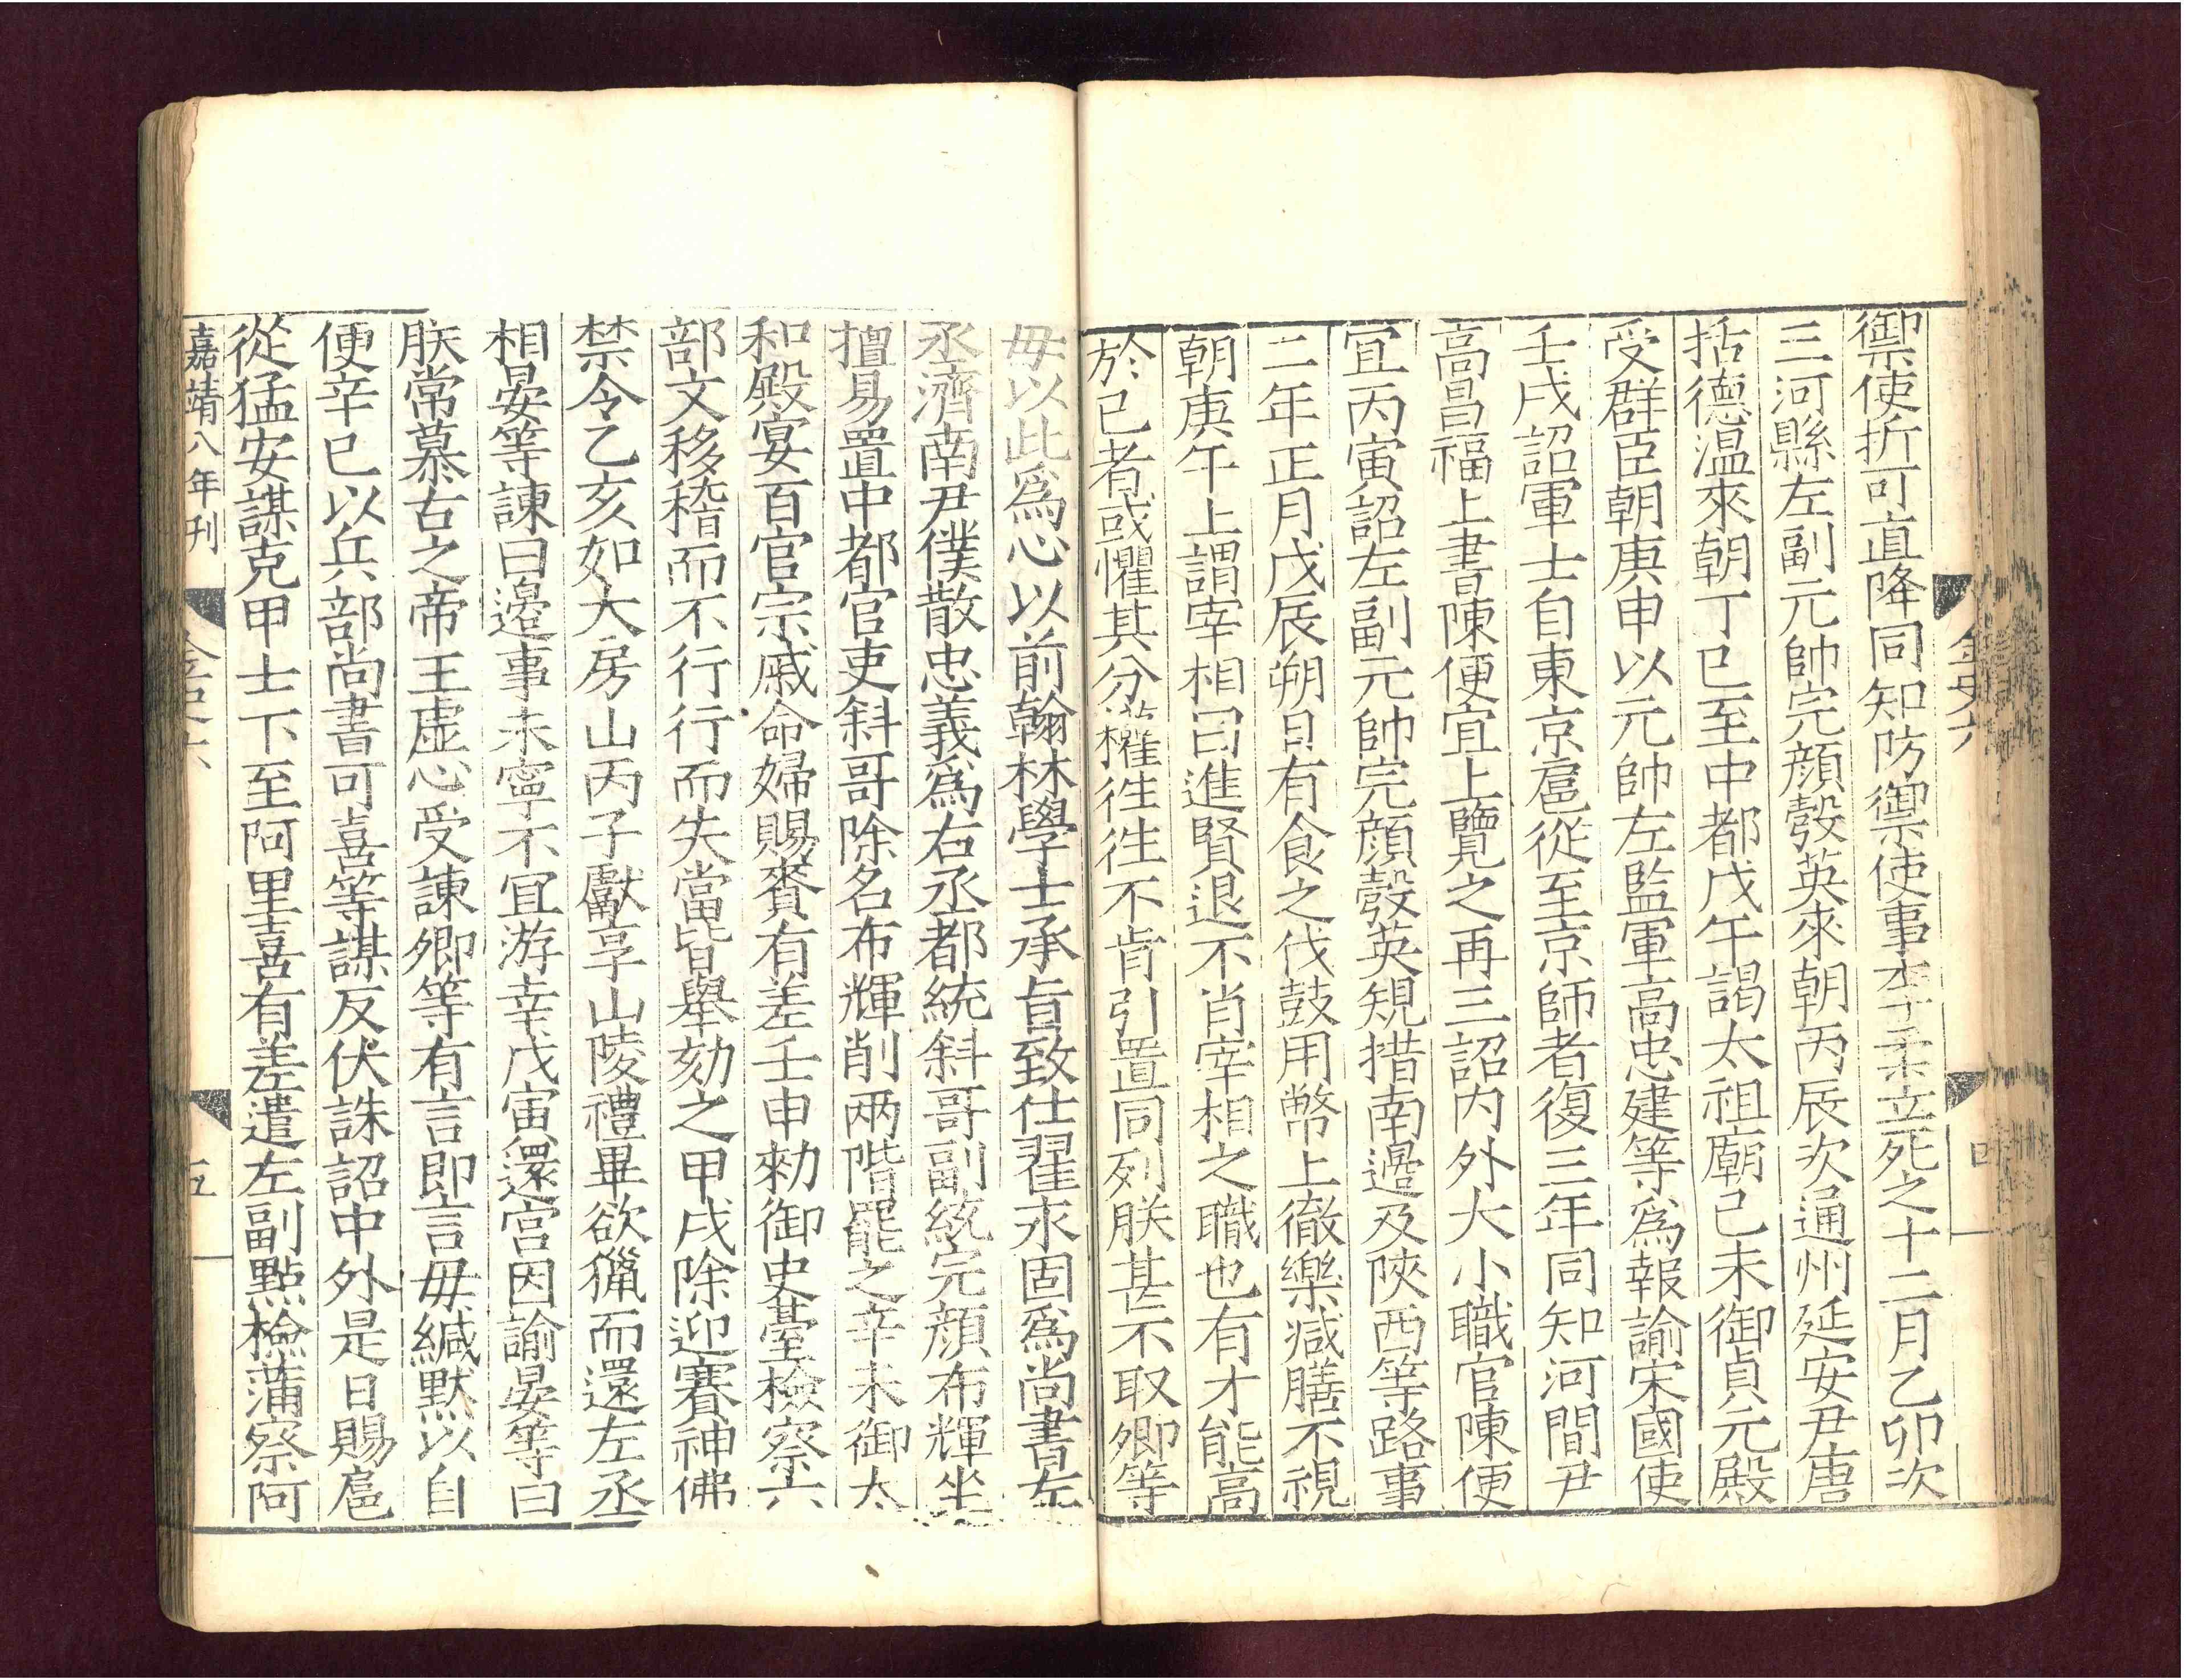 金史六
四
禦使折可直降同知防禦使事李柔立死之十二月乙卯次
三河縣左副元帥完顔彀英來朝丙辰次通州延安尹唐
括德温來朝丁巳至中都戊午謁太祖廟己未御貞元殿
受群臣朝庚申以元帥左監軍高忠建等爲報諭宋國使
壬戌詔軍士自東京扈從至京師者復三年同知河間尹
高昌福上書陳便宜上覽之再三詔内外大小職官陳便
宜丙寅詔左副元帥完顔彀英規措南邉及陝西等路事
二年正月戊辰朔日有食之伐鼓用幣上徹樂减膳不視
朝庚午上謂宰相曰進賢退不肖宰相之職也有才能高
於已者或懼其分權徃徃不肯引置同列朕甚不取卿等
毋以此爲心以前翰林學士承旨致仕翟永固爲尚書左
丞濟南尹僕散忠義爲右丞都統斜哥副統完顔布輝坐
擅易置中都官吏斜哥除名布輝削兩階罷之辛未御太
和殿宴百官宗戚命婦賜賚有差壬申勑御史臺檢察六
部文移稽而不行行而失當皆舉劾之甲戌除迎賽神佛
禁令乙亥如大房山丙子獻享山陵禮畢欲獵而還左丞
相晏等諫曰邉事未寧不宜游幸戊寅還宫因諭晏等曰
朕常慕古之帝王虚心受諫卿等有言即言毋緘默以自
便辛巳以兵部尚書可喜等謀反伏誅詔中外是日賜扈
從猛安謀克甲士下至阿里喜有差遣左副點檢蒲察阿
嘉靖八年刊
金史六
五